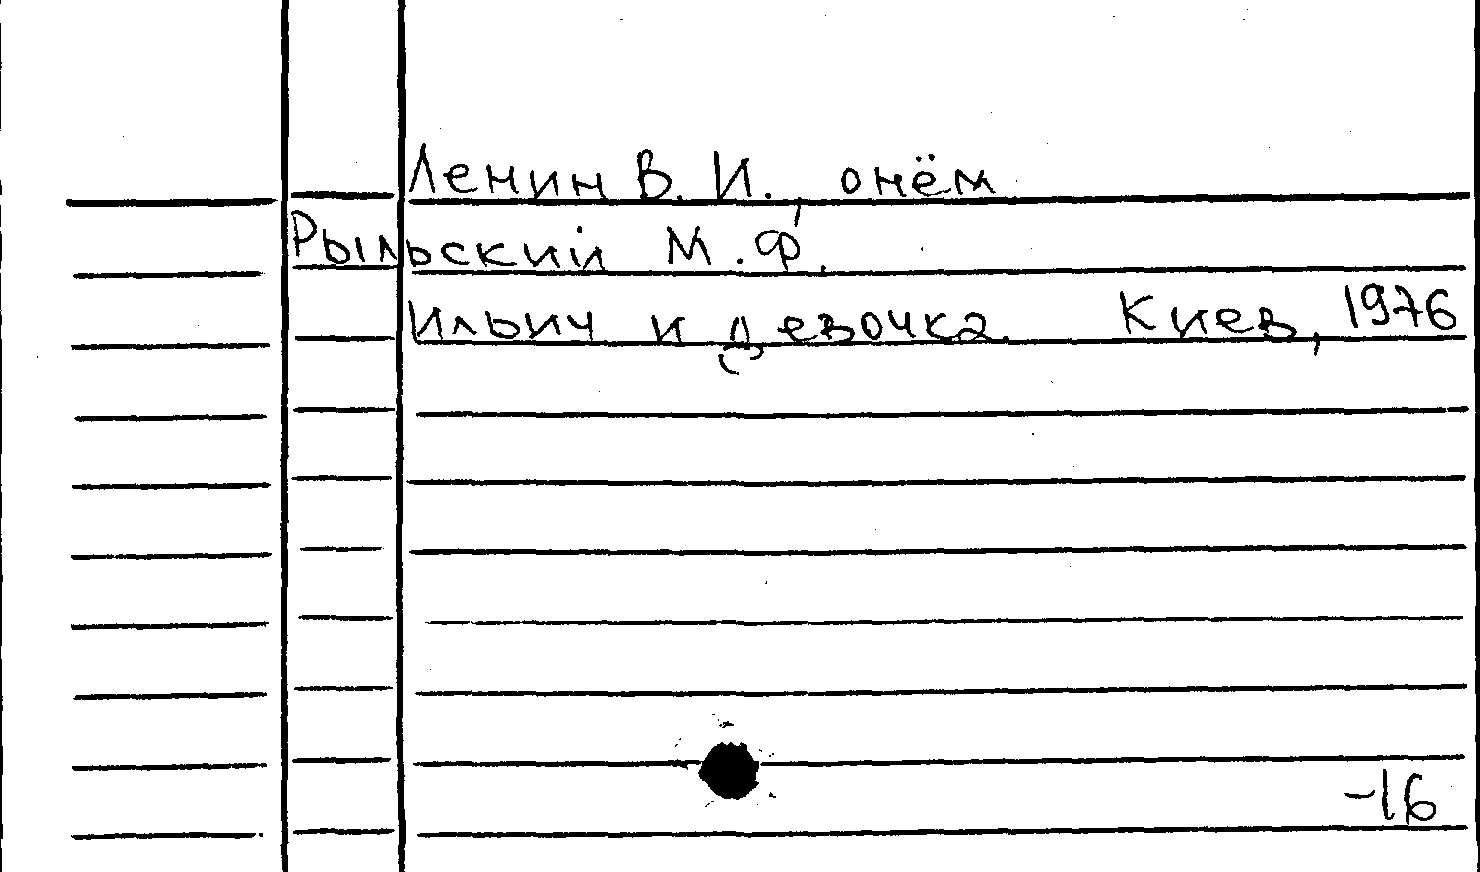 Ленин В. И., о нём
Рыльский М. Ф.
Ильич и девочка. Киев, 1976
-16